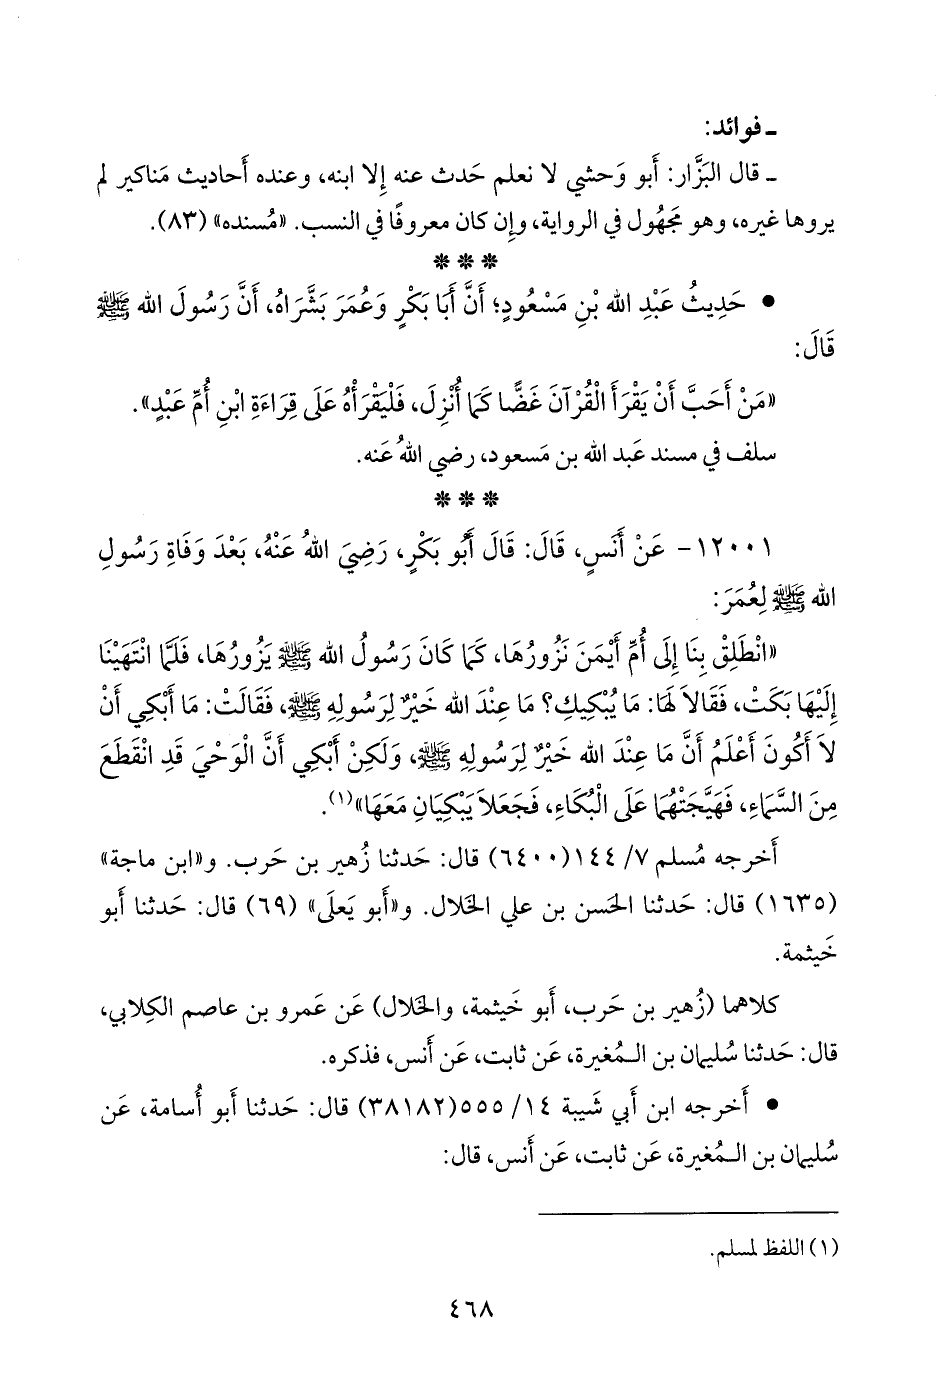 ـ فوائد:
ـ قال البَزَّار: أَبو وَحشي لا نعلم حَدث عنه إِلا ابنه، وعنده أَحاديث مَناكير لم
يروها غيره، وهو مَجهُول في الرواية، وإِن كان معروفًا في النسب. «مُسنده» (٨٣).
* * *
• حَدِيثُ عَبْدِ الله بْنِ مَسْعُودٍ؛ أَنَّ أَبَا بَكْرٍ وَعُمَرَ بَشَّرَاهُ، أَنَّ رَسُولَ الله ﷺ
قَالَ:
«مَنْ أَحَبَّ أَنْ يَقْرَأَ الْقُرْآنَ غَضًّا كَمَا أُنْزِلَ، فَلْيَقْرَأْهُ عَلَى قِرَاءَةِ ابْنِ أُمِّ عَبْدٍ».
سلف في مسند عَبد الله بن مَسعود، رضي اللهُ عَنه.
* * *
١٢٠٠١- عَنْ أَنَسٍ، قَالَ: قَالَ أَبُو بَكْرٍ، رَضِيَ اللهُ عَنْهُ، بَعْدَ وَفَاةِ رَسُولِ
الله ﷺ لِعُمَرَ:
«انْطَلِقْ بِنَا إِلَى أُمِّ أَيْمَنَ نَزُورُهَا، كَمَا كَانَ رَسُولُ الله ﷺ يَزُورُهَا، فَلَمَّا انْتَهَيْنَا
إِلَيْهَا بَكَتْ، فَقَالاَ لَهَا: مَا يُبْكِيكِ؟ مَا عِنْدَ الله خَيْرٌ لِرَسُولِهِ ﷺ، فَقَالَتْ: مَا أَبْكِي أَنْ
لاَ أَكُونَ أَعْلَمُ أَنَّ مَا عِنْدَ الله خَيْرٌ لِرَسُولِهِ ﷺ، وَلَكِنْ أَبْكِي أَنَّ الْوَحْيَ قَدِ انْقَطَعَ
مِنَ السَّمَاءِ، فَهَيَّجَتْهُمَا عَلَى الْبُكَاءِ، فَجَعَلاَ يَبْكِيَانِ مَعَهَا»(١).
أَخرجه مُسلم ٧/ ١٤٤(٦٤٠٠) قال: حَدثنا زُهير بن حَرب. و«ابن ماجة»
(١٦٣٥) قال: حَدثنا الحَسن بن علي الخَلال. و«أَبو يَعلَى» (٦٩) قال: حَدثنا أَبو
خَيثمة.
كلاهما (زُهير بن حَرب، أَبو خَيثمة، والخَلال) عَن عَمرو بن عاصم الكِلابي،
قال: حَدثنا سُليمان بن الـمُغيرة، عَن ثابت، عَن أَنس، فذكره.
• أَخرجه ابن أَبي شَيبة ١٤/ ٥٥٥(٣٨١٨٢) قال: حَدثنا أَبو أُسامة، عَن
سُليمان بن الـمُغيرة، عَن ثابت، عَن أَنس، قال:
(١) اللفظ لمسلم.
٤٦٨